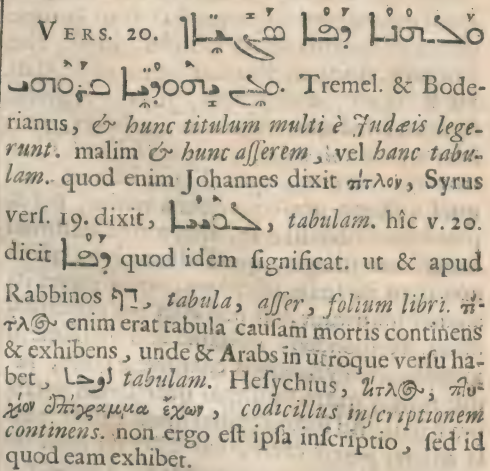 VERS. 20. ܘܠܗܢܐ ܕܦܐ ܣܓܝܐܐ
ܡܢ ܝܗܘܕܝܐ ܩܪܐܘܗܝ. Tremel. & Bode-
rianus, & hunc titulum multi è Judæis lege-
runt. malim & hunc asserem, vel hanc tabu-
lam. quod enim Johannes dixit τίτλον, Syrus
vers. 19. dixit, ܠܘܚܐ, tabulam. hîc v. 20.
dicit ܕܦܐ quod idem significat. ut & apud
Rabbinos דף, tabula, asser, folium libri. τί-
τλος enim erat tabula causam mortis continens
& exhibens, unde & Arabs in utroque versu ha-
bet, لوحا tabulam. Hesychius, τίτλος, πτυ-
χίον ἐπίγραμμα ἔχων, codicillus inscriptionem
continens. non ergo est ipsa inscriptio, sed id
quod eam exhibet.